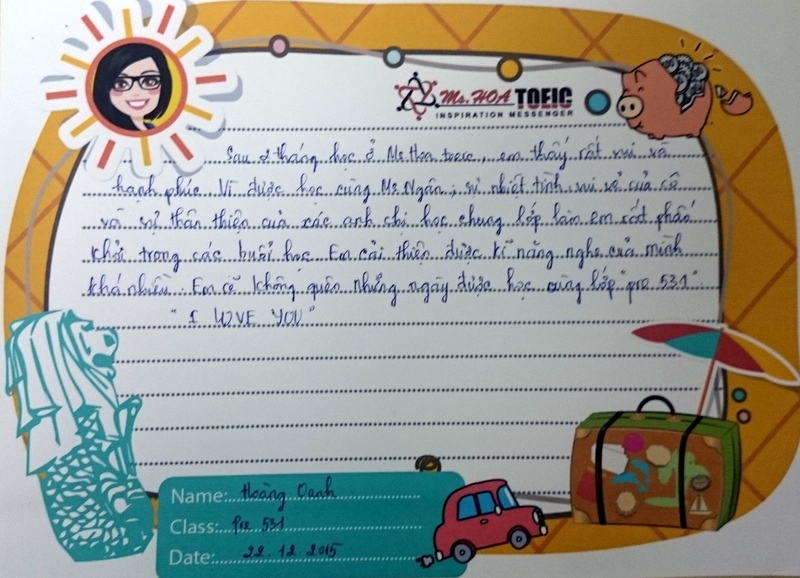 Ms. HOA TOEIC
INSPIRATION MESSENGER
Sau 2 tháng học ở Ms Hoa toeic, em thấy rất vui và
hạnh phúc. Vì được học cùng Ms. Ngân, sự nhiệt tình, vui vẻ của cô
và sự thân thiện của các anh chị học chung lớp làm em rất phấn
khởi trong các buổi học. Em cải thiện được kĩ năng nghe của mình
khá nhiều. Em sẽ không quên những ngày được học cùng lớp "pre 531"
" I LOVE YOU "
Name: Hoàng Oanh
Class: Pre 531
Date: 22.12.2015